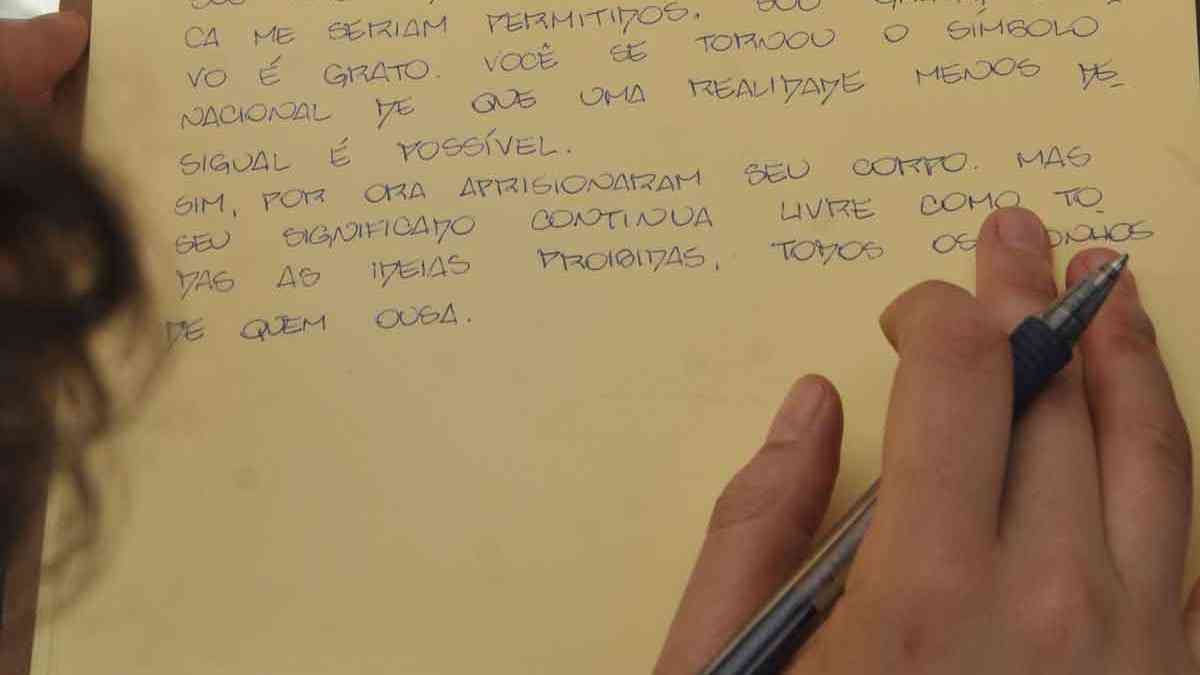 CA ME SERIAM PERMITIDOS. SOU
VO É GRATO. VOCÊ SE TORNOU O SÍMBOLO
NACIONAL DE QUE UMA REALIDADE MENOS DE-
SIGUAL É POSSÍVEL.
SIM, POR ORA APRISIONARAM SEU CORPO. MAS
SEU SIGNIFICADO CONTINUA LIVRE COMO TO-
DAS AS IDEIAS PROIBIDAS, TODOS OS
DE QUEM OUSA.